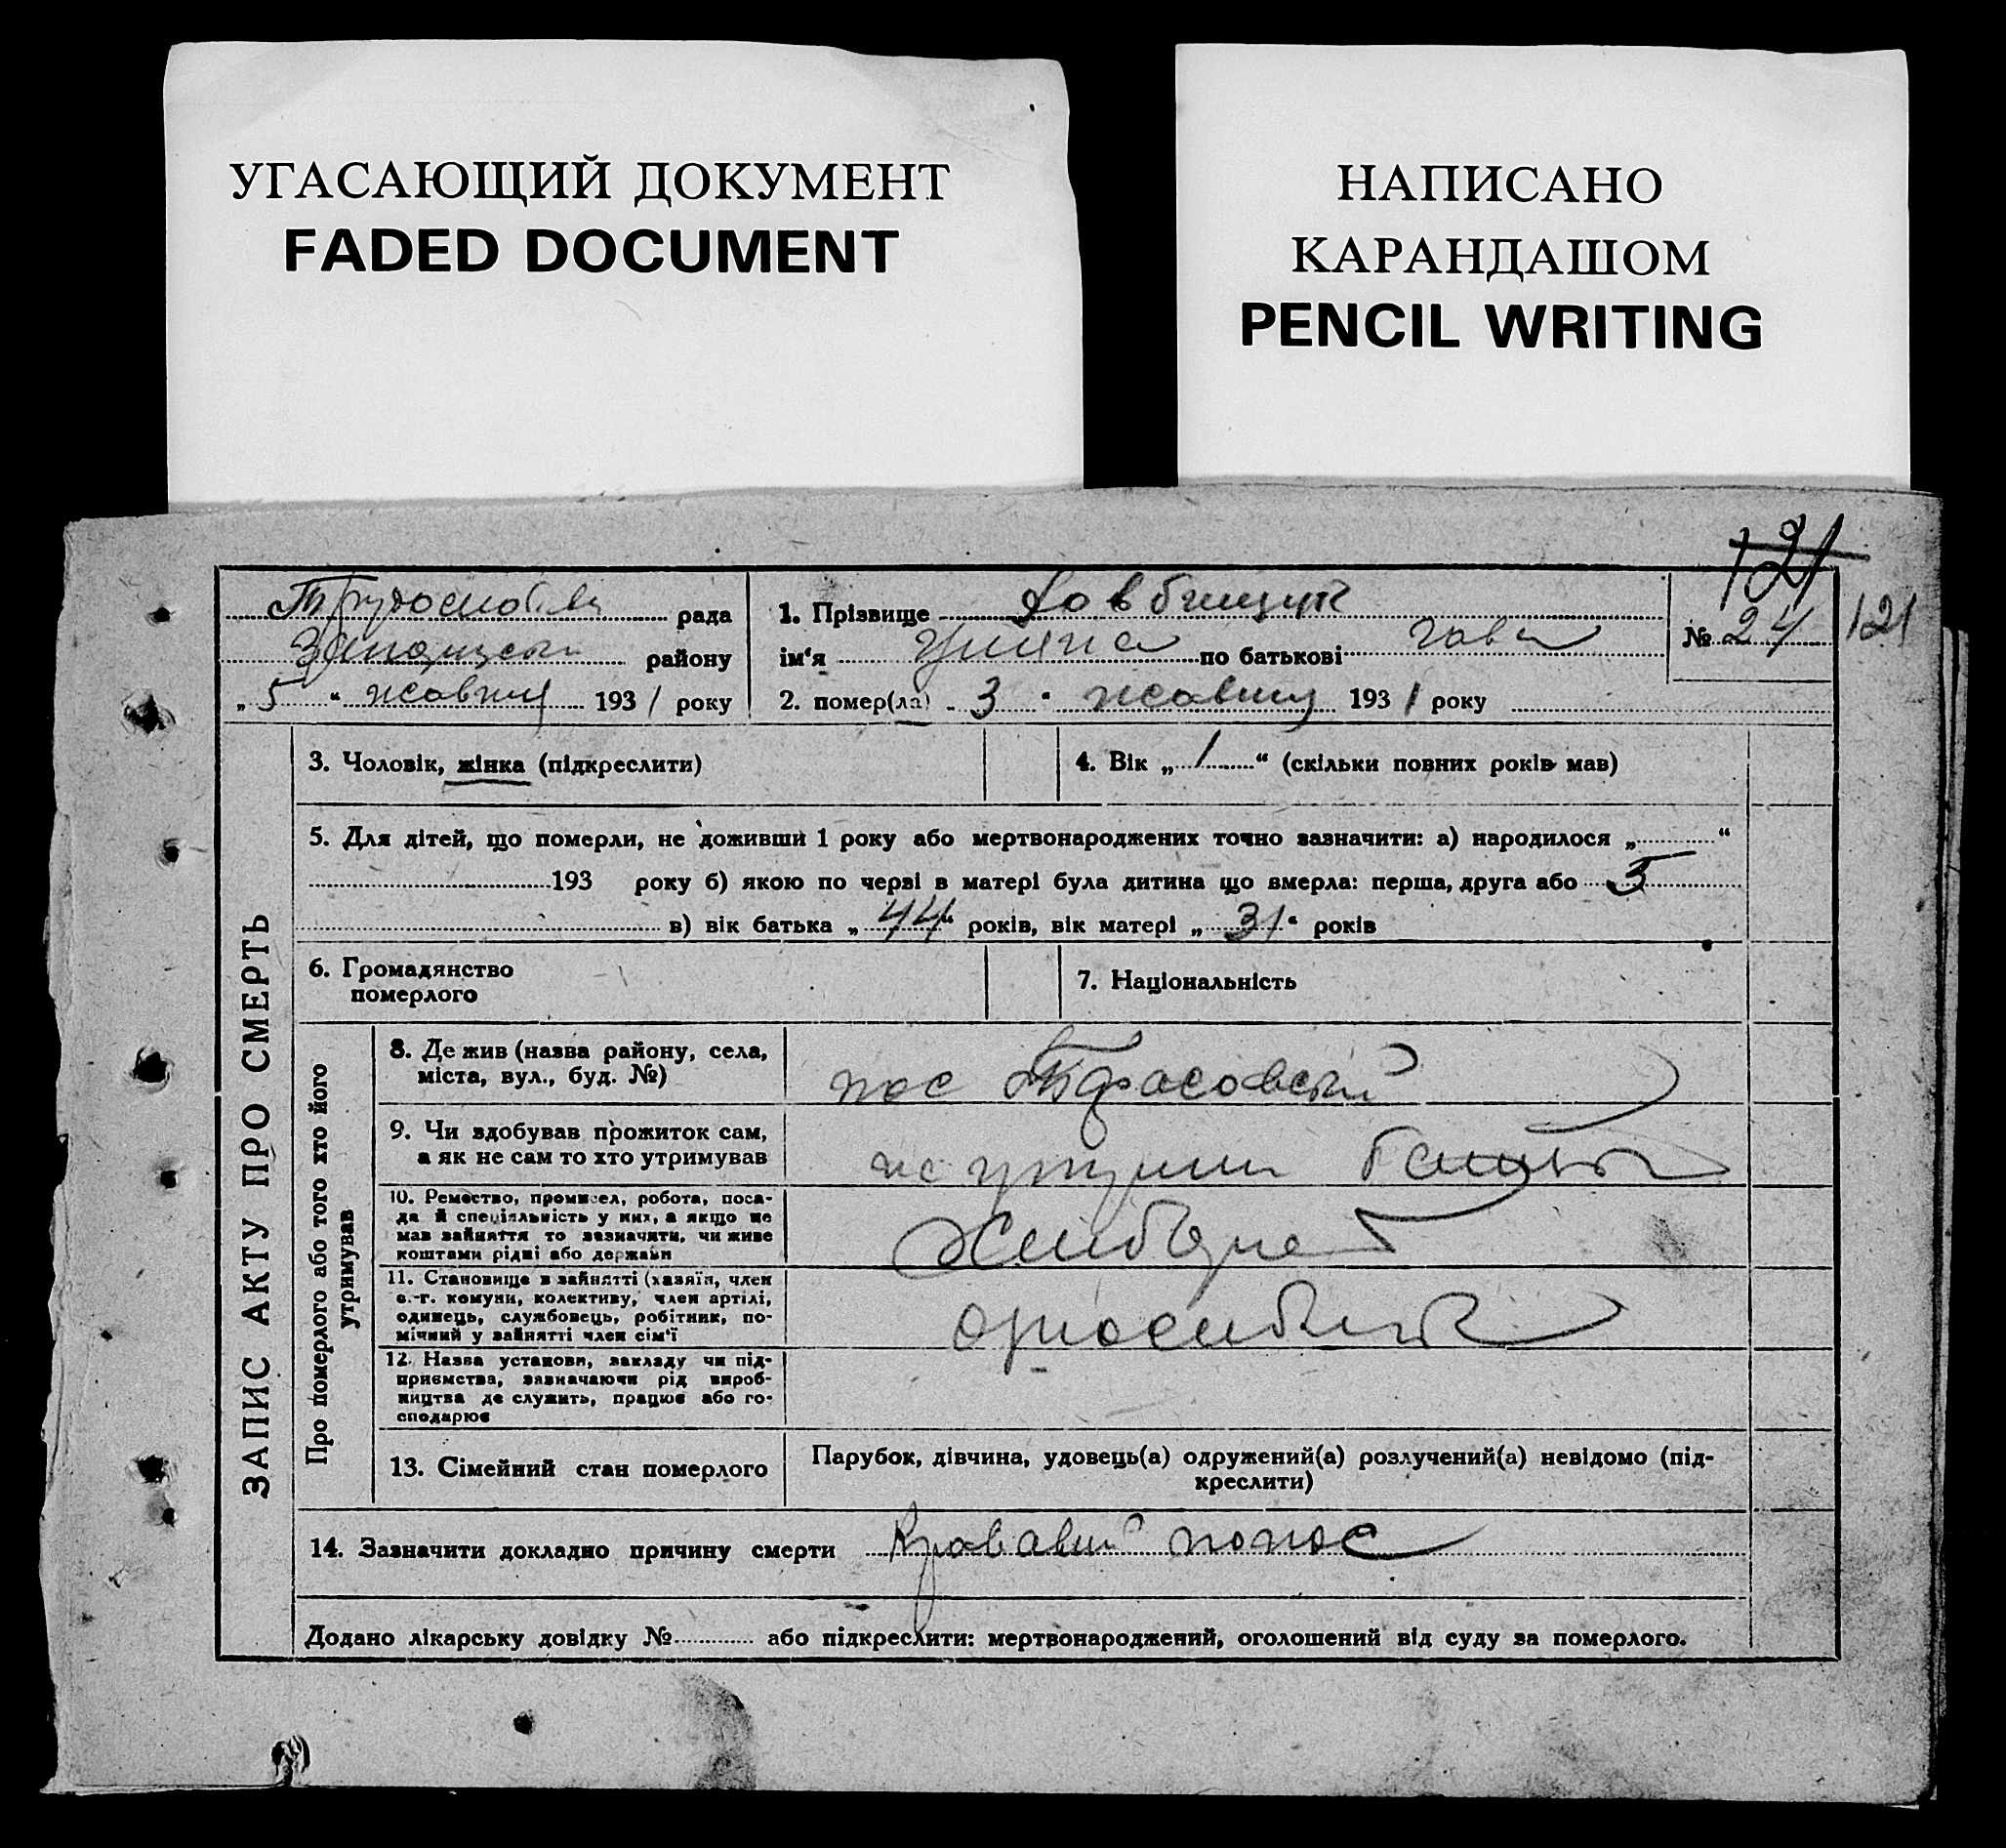 УГАСАЮЩИЙ ДОКУМЕНТ
FADED DOCUMENT
НАПИСАНО
КАРАНДАШОМ
PENCIL WRITING
121
рада
району
„ 5 “ жовтня 1931 року
1. Прізвище Довбищук
ім'я Уляна по батькові
2. помер(ла) „ 3 “ жовтня 1931 року
№ 24
121
ЗАПИС АКТУ ПРО СМЕРТЬ
3. Чоловік, жінка (підкреслити)
4. Вік „ 1 “ (скільки повних років мав)
5. Для дітей, що померли, не доживши 1 року або мертвонароджених точно зазначити: а) народилося „ “
193 року б) якою по черзі в матері була дитина що вмерла: перша, друга або 5
в) вік батька „ 44 “ років, вік матері „ 31 “ років
6. Громадянство
померлого
7. Національність
Про померлого або того хто його
утримував
8. Де жив (назва району, села,
міста, вул., буд. №)
пос Тарасовський
9. Чи здобував прожиток сам,
а як не сам то хто утримував
на утрим батька
10. Ремество, промисел, робота, поса-
да й спеціяльність у них, а якщо не
мав зайняття то зазначити, чи живе
коштами рідні або держави
Хлібороб
11. Становище в зайнятті (хазяїн, член
с.-г. комуни, колективу, член артілі,
одинець, службовець, робітник, по-
мічний у зайнятті член сім'ї
одноосібник
12. Назва установи, закладу чи під-
приємства, зазначаючи рід вироб-
ництва де служить, працює або го-
сподарює
13. Сімейний стан померлого
Парубок, дівчина, удовець(а) одружений(а) розлучений(а) невідомо (під-
креслити)
14. Зазначити докладно причину смерти Кровавий понос
Додано лікарську довідку № або підкреслити: мертвонароджений, оголошений від суду за померлого.